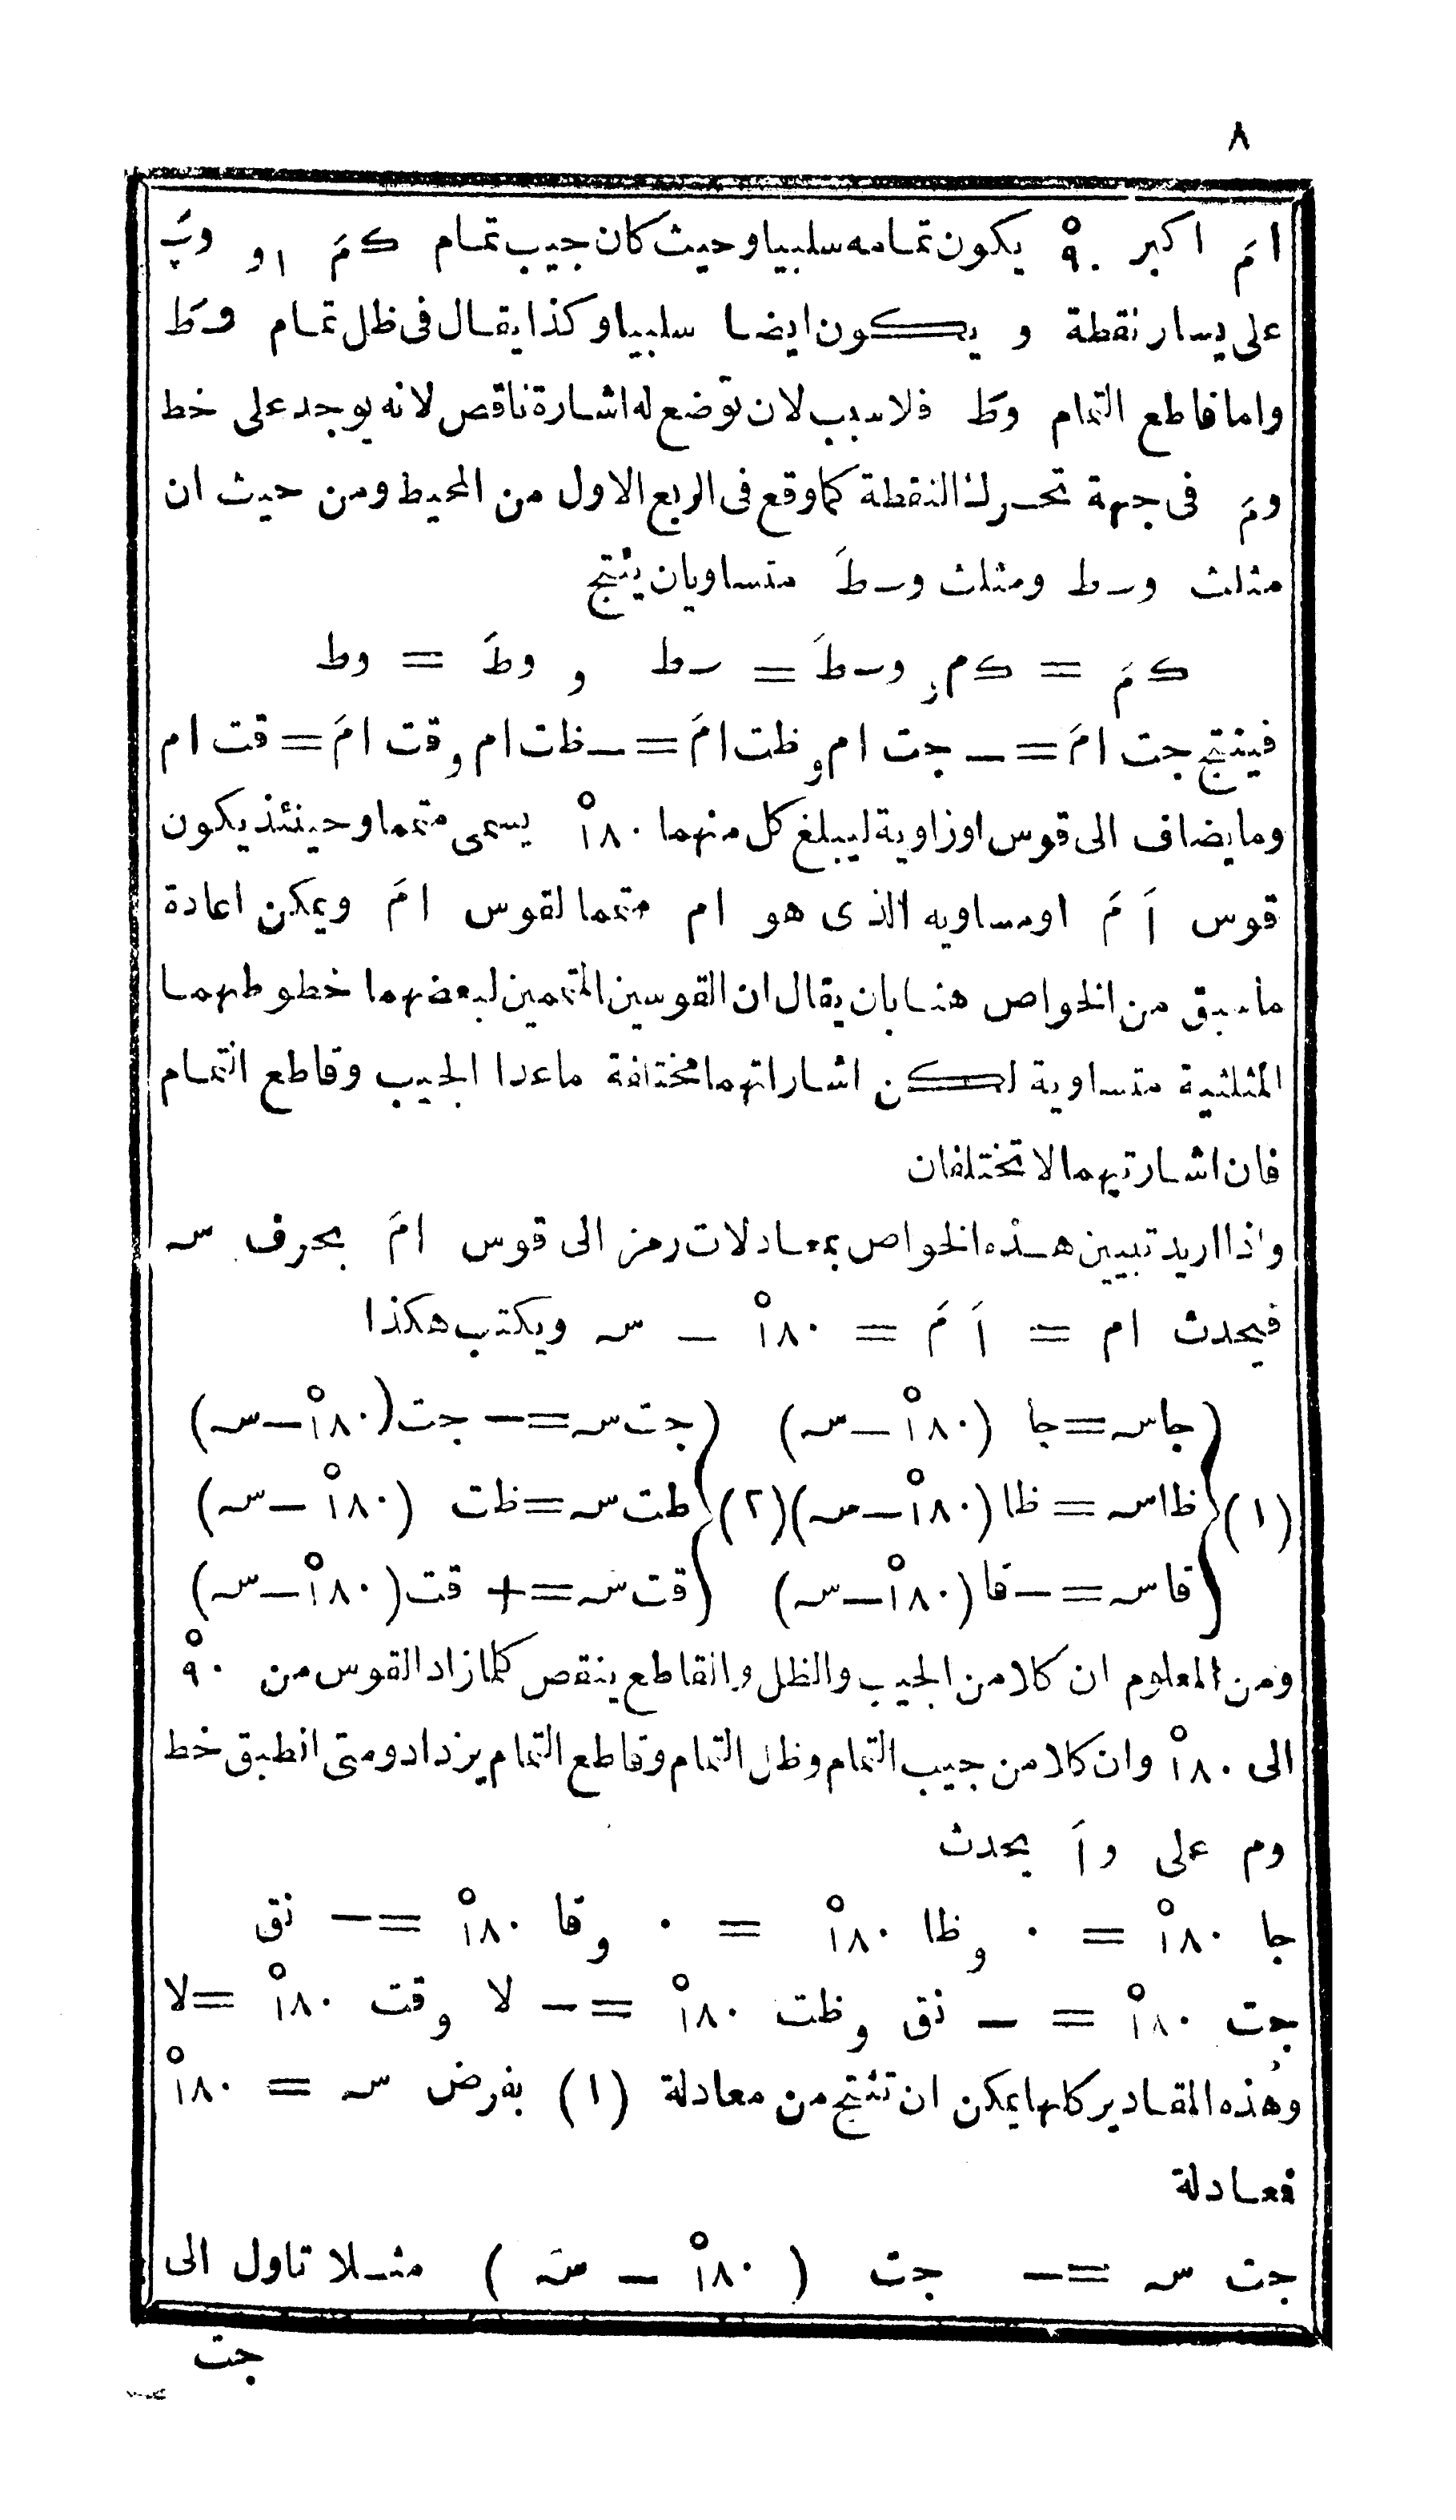 ٨
امَ اكبر ٩٠° يكون تمامه سلبيا وحيث كان جيب تمام كمَ او وپَ
على يسار نقطة و يكون ايضا سلبيا وكذا يقال فى ظل تمام وطَ
واما قاطع التمام وطَ فلا سبب لان توضع له اشارة ناقص لانه يوجد على خط
ومَ فى جهة تحرك النقطة كما وقع فى الربع الاول من المحيط ومن حيث ان
مثلث ورط ومثلث ورطَ متساويان ينتج
كمَ = كم و رطَ = رط و وطَ = وط
فينتج جت امَ = – جت ام و ظت امَ = – ظت ام و قت امَ = قت ام
وما يضاف الى قوس او زاوية ليبلغ كل منهما ١٨٠° يسمى متمما وحينئذ يكون
قوس اَ مَ او مساويه الذى هو ام متمما لقوس امَ ويمكن اعادة
ما سبق من الخواص هنا بان يقال ان القوسين المتممين لبعضهما خطوطهما
المثلثية متساوية لكن اشاراتهما مختلفة ما عدا الجيب وقاطع التمام
فان اشارتيهما لا تختلفان
واذا اريد تبيين هذه الخواص بمعادلات رمز الى قوس امَ بحرف سہ
فيحدث ام = اَ مَ = ١٨٠° – سہ ويكتب هكذا
جاسہ = جا (١٨٠° – سہ) جت سہ = – جت (١٨٠° – سہ)
(١) ظاسہ = ظا (١٨٠° – سہ) (٢) طت سہ = ظت (١٨٠° – سہ)
قاسہ = – قا (١٨٠° – سہ) قت سہ = + قت (١٨٠° – سہ)
ومن المعلوم ان كلا من الجيب والظل والقاطع ينقص كلما زاد القوس من ٩٠°
الى ١٨٠° وان كلا من جيب التمام وظل التمام وقاطع التمام يزداد ومتى انطبق خط
وم على واَ يحدث
جا ١٨٠° = ٠ و ظا ١٨٠° = ٠ و قا ١٨٠° = – نق
جت ١٨٠° = – نق و ظت ١٨٠° = – لا و قت ١٨٠° = لا
وهذه المقادير كلها يمكن ان تنتج من معادلة (١) بفرض سہ = ١٨٠°
فعادلة
جت سہ = – جت (١٨٠° – سہ) مثلا تاول الى
جت